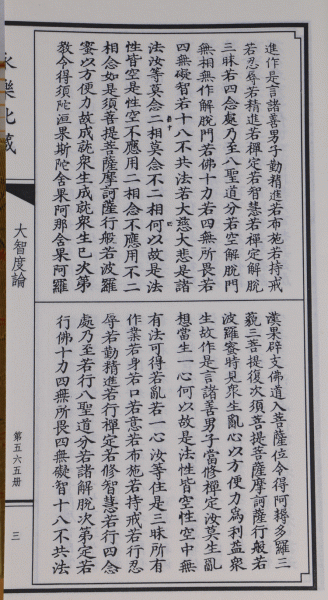 進作是言諸善男子勤精進若布施若持戒
若忍辱若精進若禪定若智慧若禪定解脫
三昧若四念處乃至八聖道分若空解脫門
無相無作解脫門若佛十力若四無所畏若
四無礙智若十八不共法若大慈大悲是諸
法汝等莫念二相莫念不二相何以故是法
性皆空是性空不應用二相念不應用不二
相念如是須菩提菩薩摩訶薩行般若波羅
蜜以方便力故成就衆生成就衆生已次第
教令得須陀洹果斯陀含果阿那含果阿羅
漢果辟支佛道入菩薩位令得阿耨多羅三
藐三菩提復次須菩提菩薩摩訶薩行般若
波羅蜜時見衆生亂心以方便力爲利益衆
生故作是言諸善男子當修禪定汝莫生亂
想當生一心何以故是法性皆空性空中無
有法可得若亂若一心汝等住是三昧所有
作業若身若口若意若布施若持戒若行忍
辱若勤精進若行禪定若修智慧若行四念
處乃至若行八聖道分若諸解脫次第定若
行佛十力四無所畏四無礙智十八不共法
永樂北藏
大智度論
第五六五册
三